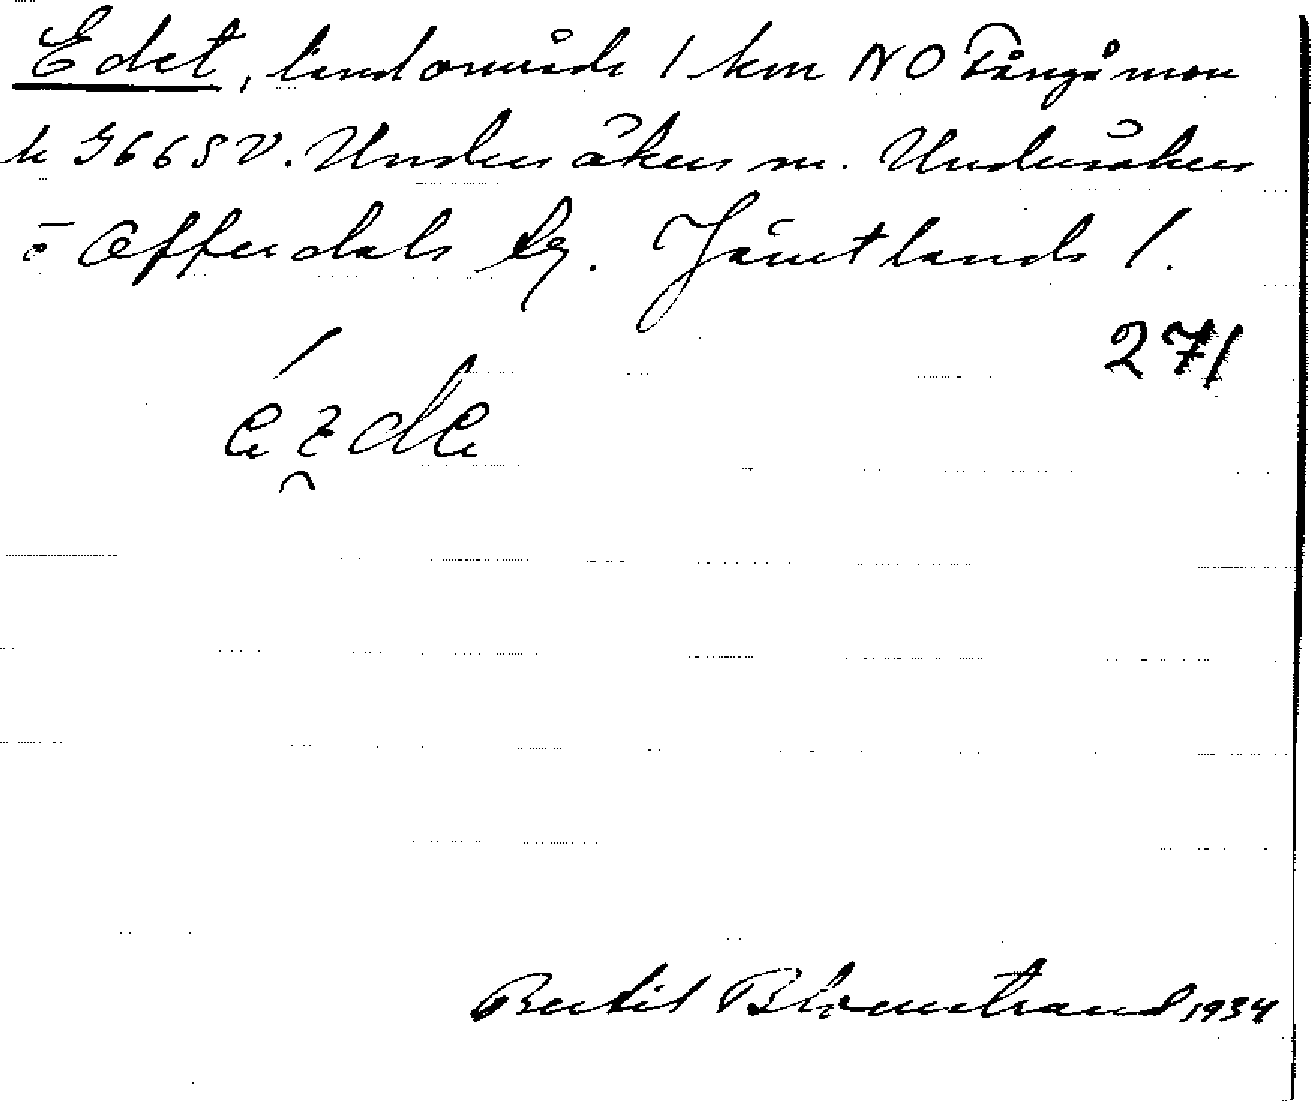 Edet, landområde 1 km NO Tångåmon
k 366SV. Undersåkers sn. Undersåkers
o Offerdals tg. Jämtlands l.
271
ézde
Bertil Blomstrand 1934